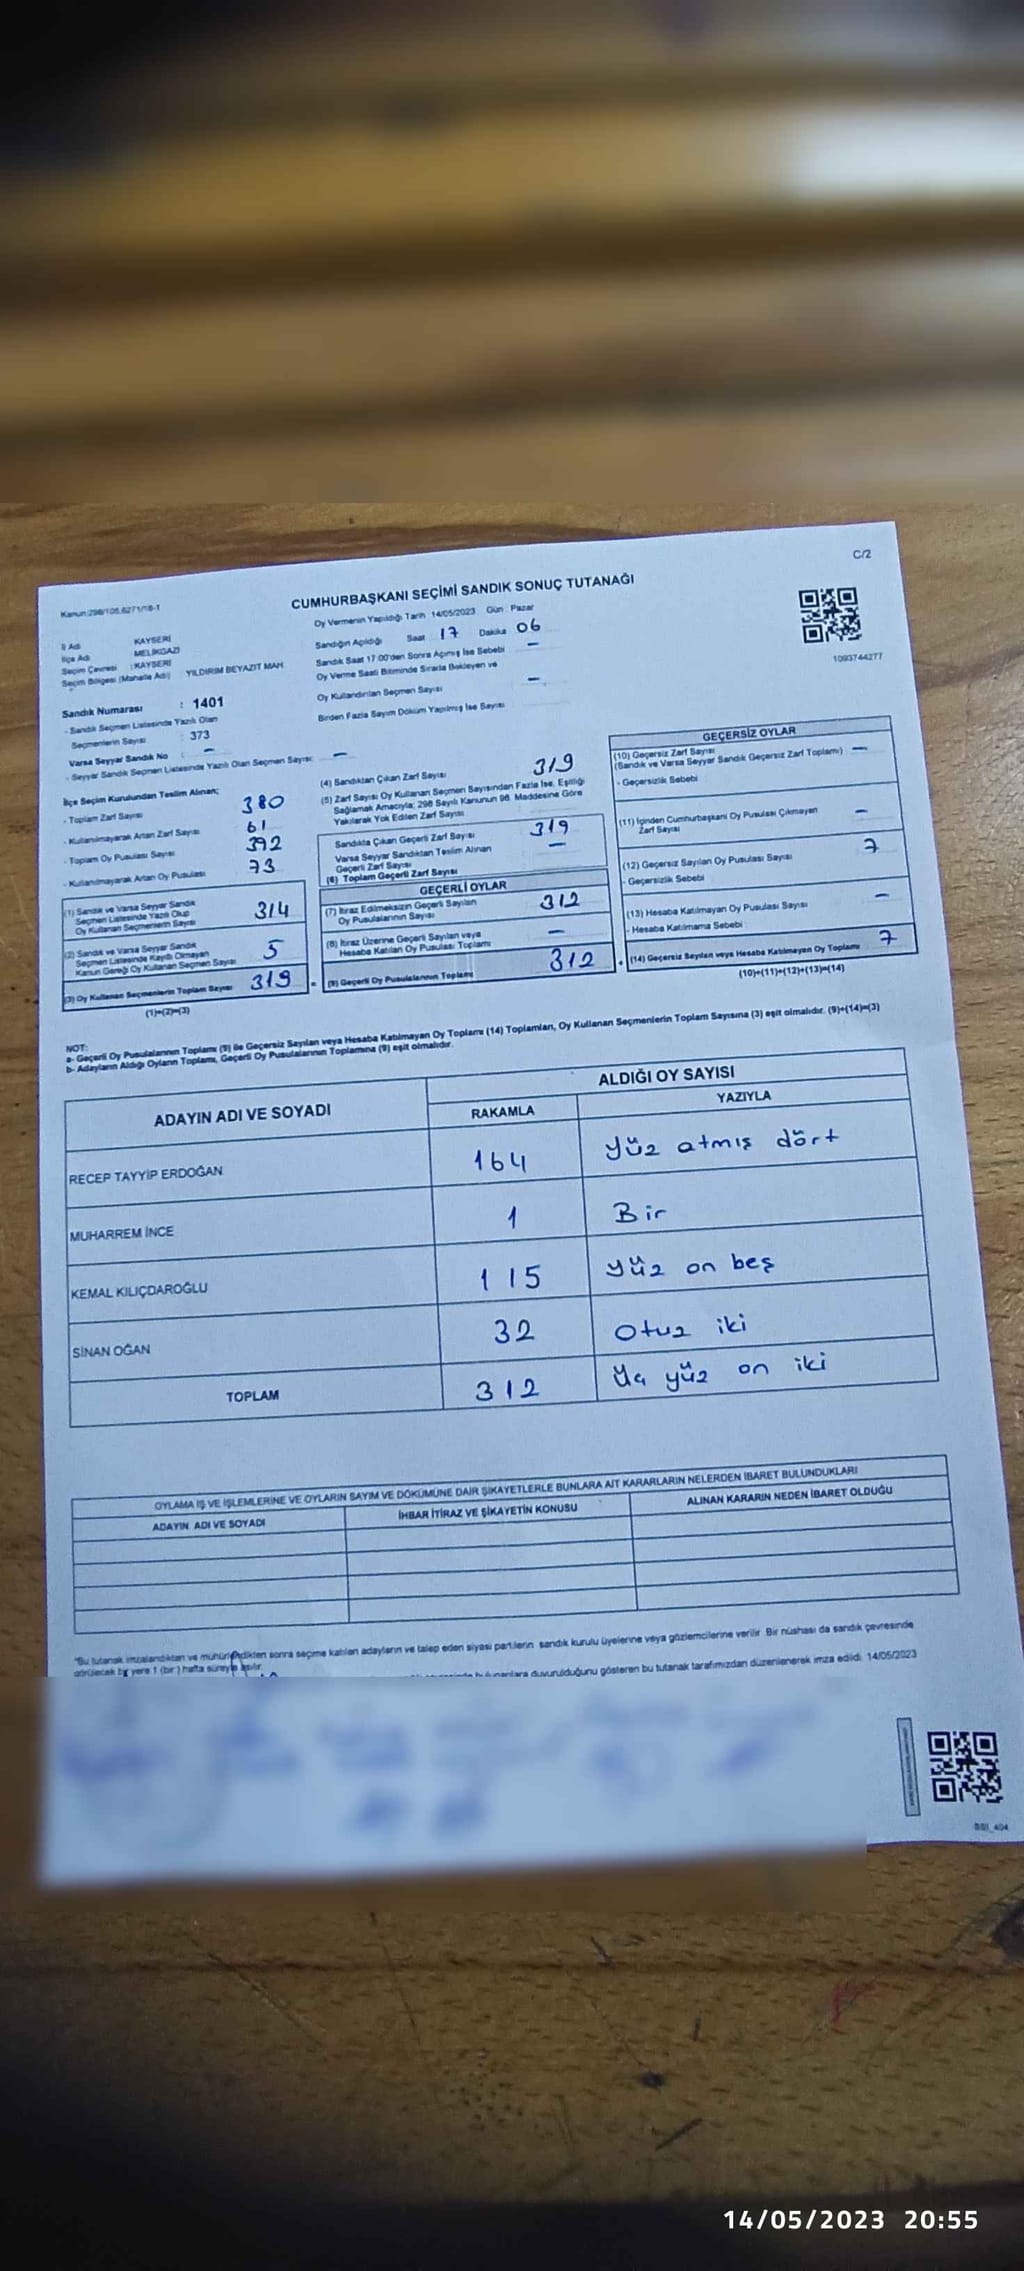 C/2
Kanun:298/105,6271/18-1
CUMHURBAŞKANI SEÇİMİ SANDIK SONUÇ TUTANAĞI
1093744277
İl Adı KAYSERİ
İlçe Adı MELİKGAZİ
Seçim Çevresi : KAYSERİ
Seçim Bölgesi (Mahalle Adı) YILDIRIM BEYAZIT MAH.
Sandık Numarası : 1401
- Sandık Seçmen Listesinde Yazılı Olan
Seçmenlerin Sayısı : 373
Varsa Seyyar Sandık No : –
- Seyyar Sandık Seçmen Listesinde Yazılı Olan Seçmen Sayısı: –
Oy Vermenin Yapıldığı Tarih 14/05/2023 Gün : Pazar
Sandığın Açıldığı Saat 17 Dakika 06
Sandık Saat 17:00'den Sonra Açılmış İse Sebebi –
Oy Verme Saati Bitiminde Sırada Bekleyen ve
Oy Kullandırılan Seçmen Sayısı –
Birden Fazla Sayım Döküm Yapılmış İse Sayısı
İlçe Seçim Kurulundan Teslim Alınan;
- Toplam Zarf Sayısı 380
- Kullanılmayarak Artan Zarf Sayısı 61
- Toplam Oy Pusulası Sayısı 392
- Kullanılmayarak Artan Oy Pusulası 73
(1) Sandık ve Varsa Seyyar Sandık
Seçmen Listesinde Yazılı Olup
Oy Kullanan Seçmenlerin Sayısı 314
(2) Sandık ve Varsa Seyyar Sandık
Seçmen Listesinde Kayıtlı Olmayan
Kanun Gereği Oy Kullanan Seçmen Sayısı 5
(3) Oy Kullanan Seçmenlerin Toplam Sayısı 319
(1)+(2)=(3)
(4) Sandıktan Çıkan Zarf Sayısı 319
(5) Zarf Sayısı Oy Kullanan Seçmen Sayısından Fazla İse, Eşitliği
Sağlamak Amacıyla; 298 Sayılı Kanunun 98. Maddesine Göre
Yakılarak Yok Edilen Zarf Sayısı
Sandıkta Çıkan Geçerli Zarf Sayısı 319
Varsa Seyyar Sandıktan Teslim Alınan
Geçerli Zarf Sayısı –
(6) Toplam Geçerli Zarf Sayısı
GEÇERLİ OYLAR
(7) İtiraz Edilmeksizin Geçerli Sayılan
Oy Pusulalarının Sayısı 312
(8) İtiraz Üzerine Geçerli Sayılan veya
Hesaba Katılan Oy Pusulası Toplamı –
(9) Geçerli Oy Pusulalarının Toplamı 312
GEÇERSİZ OYLAR
(10) Geçersiz Zarf Sayısı
(Sandık ve Varsa Seyyar Sandık Geçersiz Zarf Toplamı) –
- Geçersizlik Sebebi
(11) İçinden Cumhurbaşkanı Oy Pusulası Çıkmayan
Zarf Sayısı –
(12) Geçersiz Sayılan Oy Pusulası Sayısı 7
- Geçersizlik Sebebi
(13) Hesaba Katılmayan Oy Pusulası Sayısı –
- Hesaba Katılmama Sebebi
(14) Geçersiz Sayılan veya Hesaba Katılmayan Oy Toplamı 7
(10)+(11)+(12)+(13)=(14)
NOT:
a- Geçerli Oy Pusulalarının Toplamı (9) ile Geçersiz Sayılan veya Hesaba Katılmayan Oy Toplamı (14) Toplamları, Oy Kullanan Seçmenlerin Toplam Sayısına (3) eşit olmalıdır. (9)+(14)=(3)
b- Adayların Aldığı Oyların Toplamı, Geçerli Oy Pusulalarının Toplamına (9) eşit olmalıdır.
ADAYIN ADI VE SOYADI ALDIĞI OY SAYISI
RAKAMLA YAZIYLA
RECEP TAYYİP ERDOĞAN 164 yüz atmış dört
MUHARREM İNCE 1 Bir
KEMAL KILIÇDAROĞLU 115 yüz on beş
SİNAN OĞAN 32 Otuz iki
TOPLAM 312 yüz on iki
OYLAMA İŞ VE İŞLEMLERİNE VE OYLARIN SAYIM VE DÖKÜMÜNE DAİR ŞİKAYETLERLE BUNLARA AİT KARARLARIN NELERDEN İBARET BULUNDUKLARI
ADAYIN ADI VE SOYADI İHBAR İTİRAZ VE ŞİKAYETİN KONUSU ALINAN KARARIN NEDEN İBARET OLDUĞU
"Bu tutanak imzalandıktan ve mühürlendikten sonra seçime katılan adayların ve talep eden siyasi partilerin sandık kurulu üyelerine veya gözlemcilerine verilir. Bir nüshası da sandık çevresinde
görülecek bir yere 1 (bir) hafta süreyle asılır.
bulunanlara duyurulduğunu gösteren bu tutanak tarafımızdan düzenlenerek imza edildi. 14/05/2023
14/05/2023 20:55